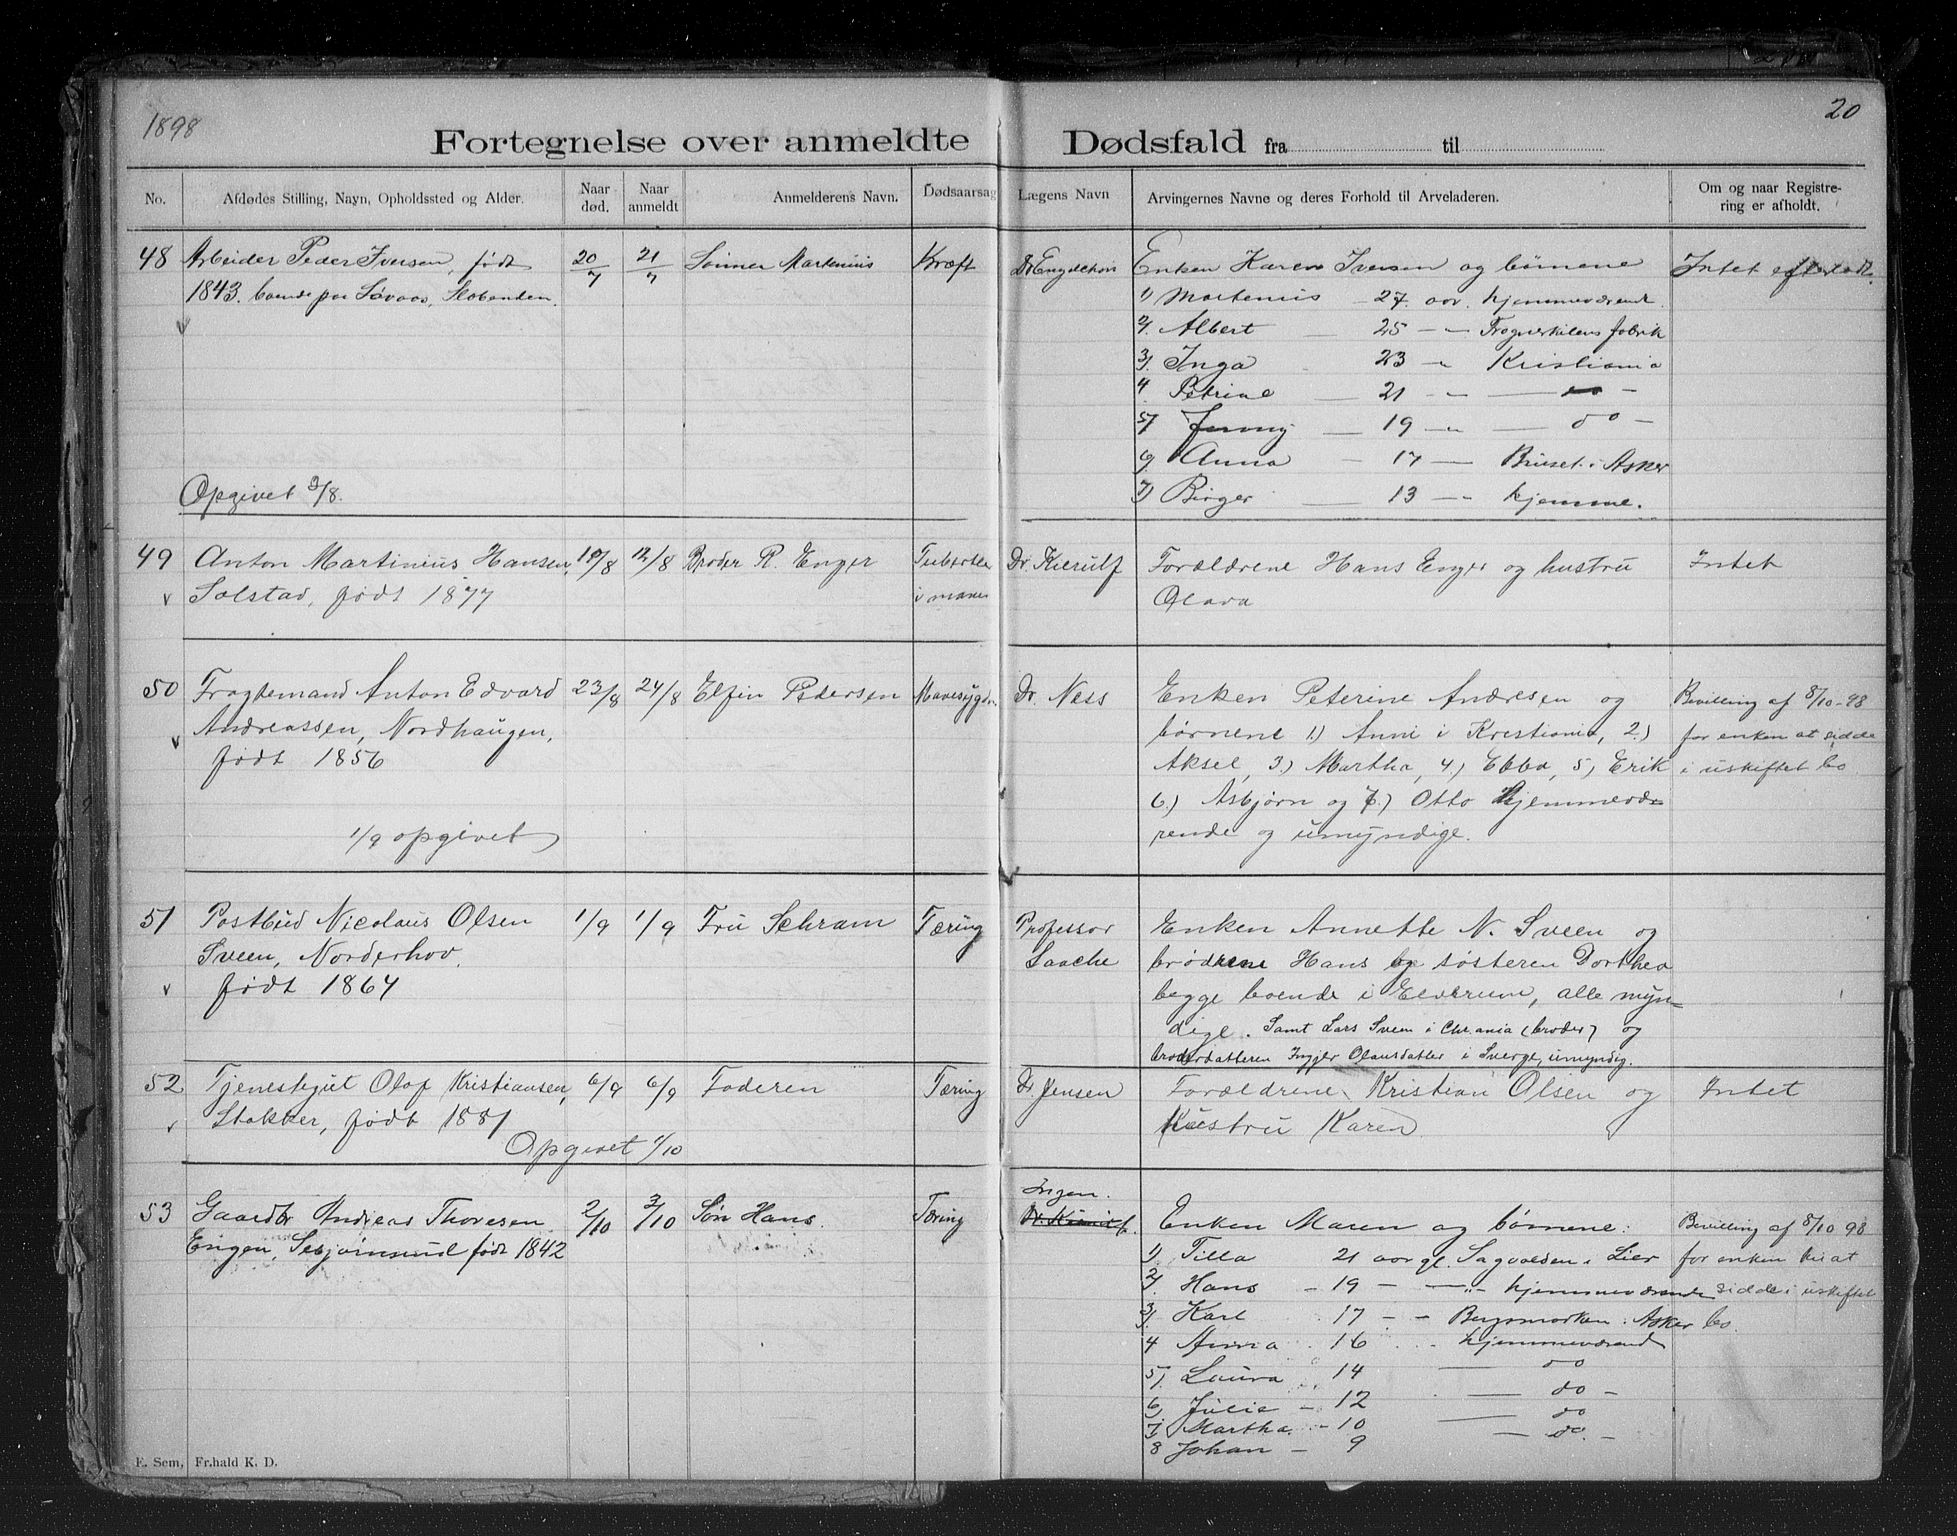 1898
20
Fortegnelse over anmeldte Dødsfald fra til
No. Afdødes Stilling, Navn, Opholdssted og Alder. Naar død. Naar anmeldt Anmelderens Navn. Dødsaarsag Lægens Navn Arvingernes Navne og deres Forhold til Arveladeren. Om og naar Registrering er afholdt.
48 Arbeider Peder Iversen, født 20/7 21/7 Sønnen Martenius Kræft Enken Karen Iversen og børnene Intet efterladt
1843. boende paa Slobenden.
1) Martenius – 27 aar. hjemmeværende.
2) Albert – 25 – " Frognerkilens fabrik
3) Inga 23 " Kristiania
4 Petrine – 21 – " – do –
5) Jenny – 19 – " – do –
6) Anna – 17 – Bruset i Asker
7) Birger – 13 – " hjemme.
Opgivet 3/8.
49 Anton Martinius Hansen, 12/8 Broder R. Enger Tuberkle Dr. Kierulf Forældrene Hans Enger og hustru Intet
Solstad, født 1877 i maven Olava
50 Fragtemand Anton Edvard 23/8 24/8 Elfin Pedersen Mavesygdn. Dr. Ness Enken Peterine Andresen og Bevilling af 8/10-98
Andreassen, Nordhaugen, børnene 1) Anni i Kristiania, 2.) for enken at sidde
født 1856 Aksel, 3.) Martha, 4.) Ebba, 5) Erik i uskiftet bo
6.) Asbjørn og 7.) Otto hjemmevæ-
1/9 opgivet rende og umyndige.
51 Postbud Nicolaus Olsen 1/9 1/9 Fru Schram Tæring Professor Enken Annette N. Sveen og
Sveen, Norderhov, Laache brødrene Hans og søsteren Dorthea
født 1864 begge boende i Elverum, alle myn-
dige. Samt Lars Sveen i Chr.ania (broder) og
broderdatteren Ingjer Olausdatter i Sverge, umyndig.
52 Tjenestgut Olaf Kristiansen, 6/9 6/9 Faderen Tæring Dr. Jensen Forældrene Kristian Olsen og Intet
Stokker, født 1881 hustru Karen
Opgivet 1/10
Ingen.
53 Gaardbr Andreas Thoresen 2/10 3/10 Søn Hans. Tæring Enken Maren og børnene: Bevilling af 8/10 98
Engen, født 1842
1) Tilla 21 aar gl. Sagvolden i Lier for enken til at
2) Hans – 19 – – " – hjemmeværende sidde i uskiftet
3) Karl 17 – – Bergsmarken i Asker bo.
4 Anna 16 hjemmeværend
5) Laura 14 – do
6) Julie – 12 – do –
7) Martha – 10 – do
8 Johan – 9 – do –
E. Sem, Fr.hald K. D.